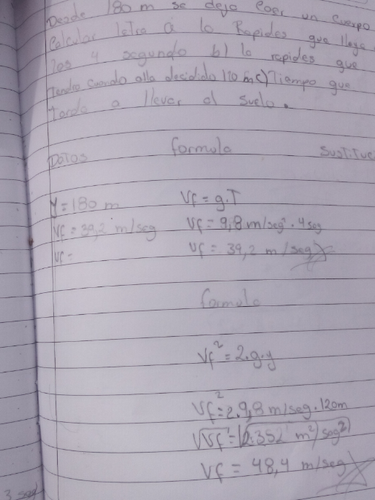 Desde 180 m se deja caer un cuerpo
Calcular letra a lo Rapides que llega
los 4 segundo b) la rapides que
Tendra cuando alla decidido 110 m c) Tiempo que
tarda a llevar al suelo.
Datos formula Sustitue
Y = 180 m Vf = g.T
Vf = 39,2 m/seg Vf = 9,8 m/seg² · 4 seg
Vf = Vf = 39,2 m/seg
formula
Vf² = 2.g.g
Vf² = 2.9,8 m/seg.120m
√Vf² = √2.352 m²/seg²
Vf = 48,4 m/seg